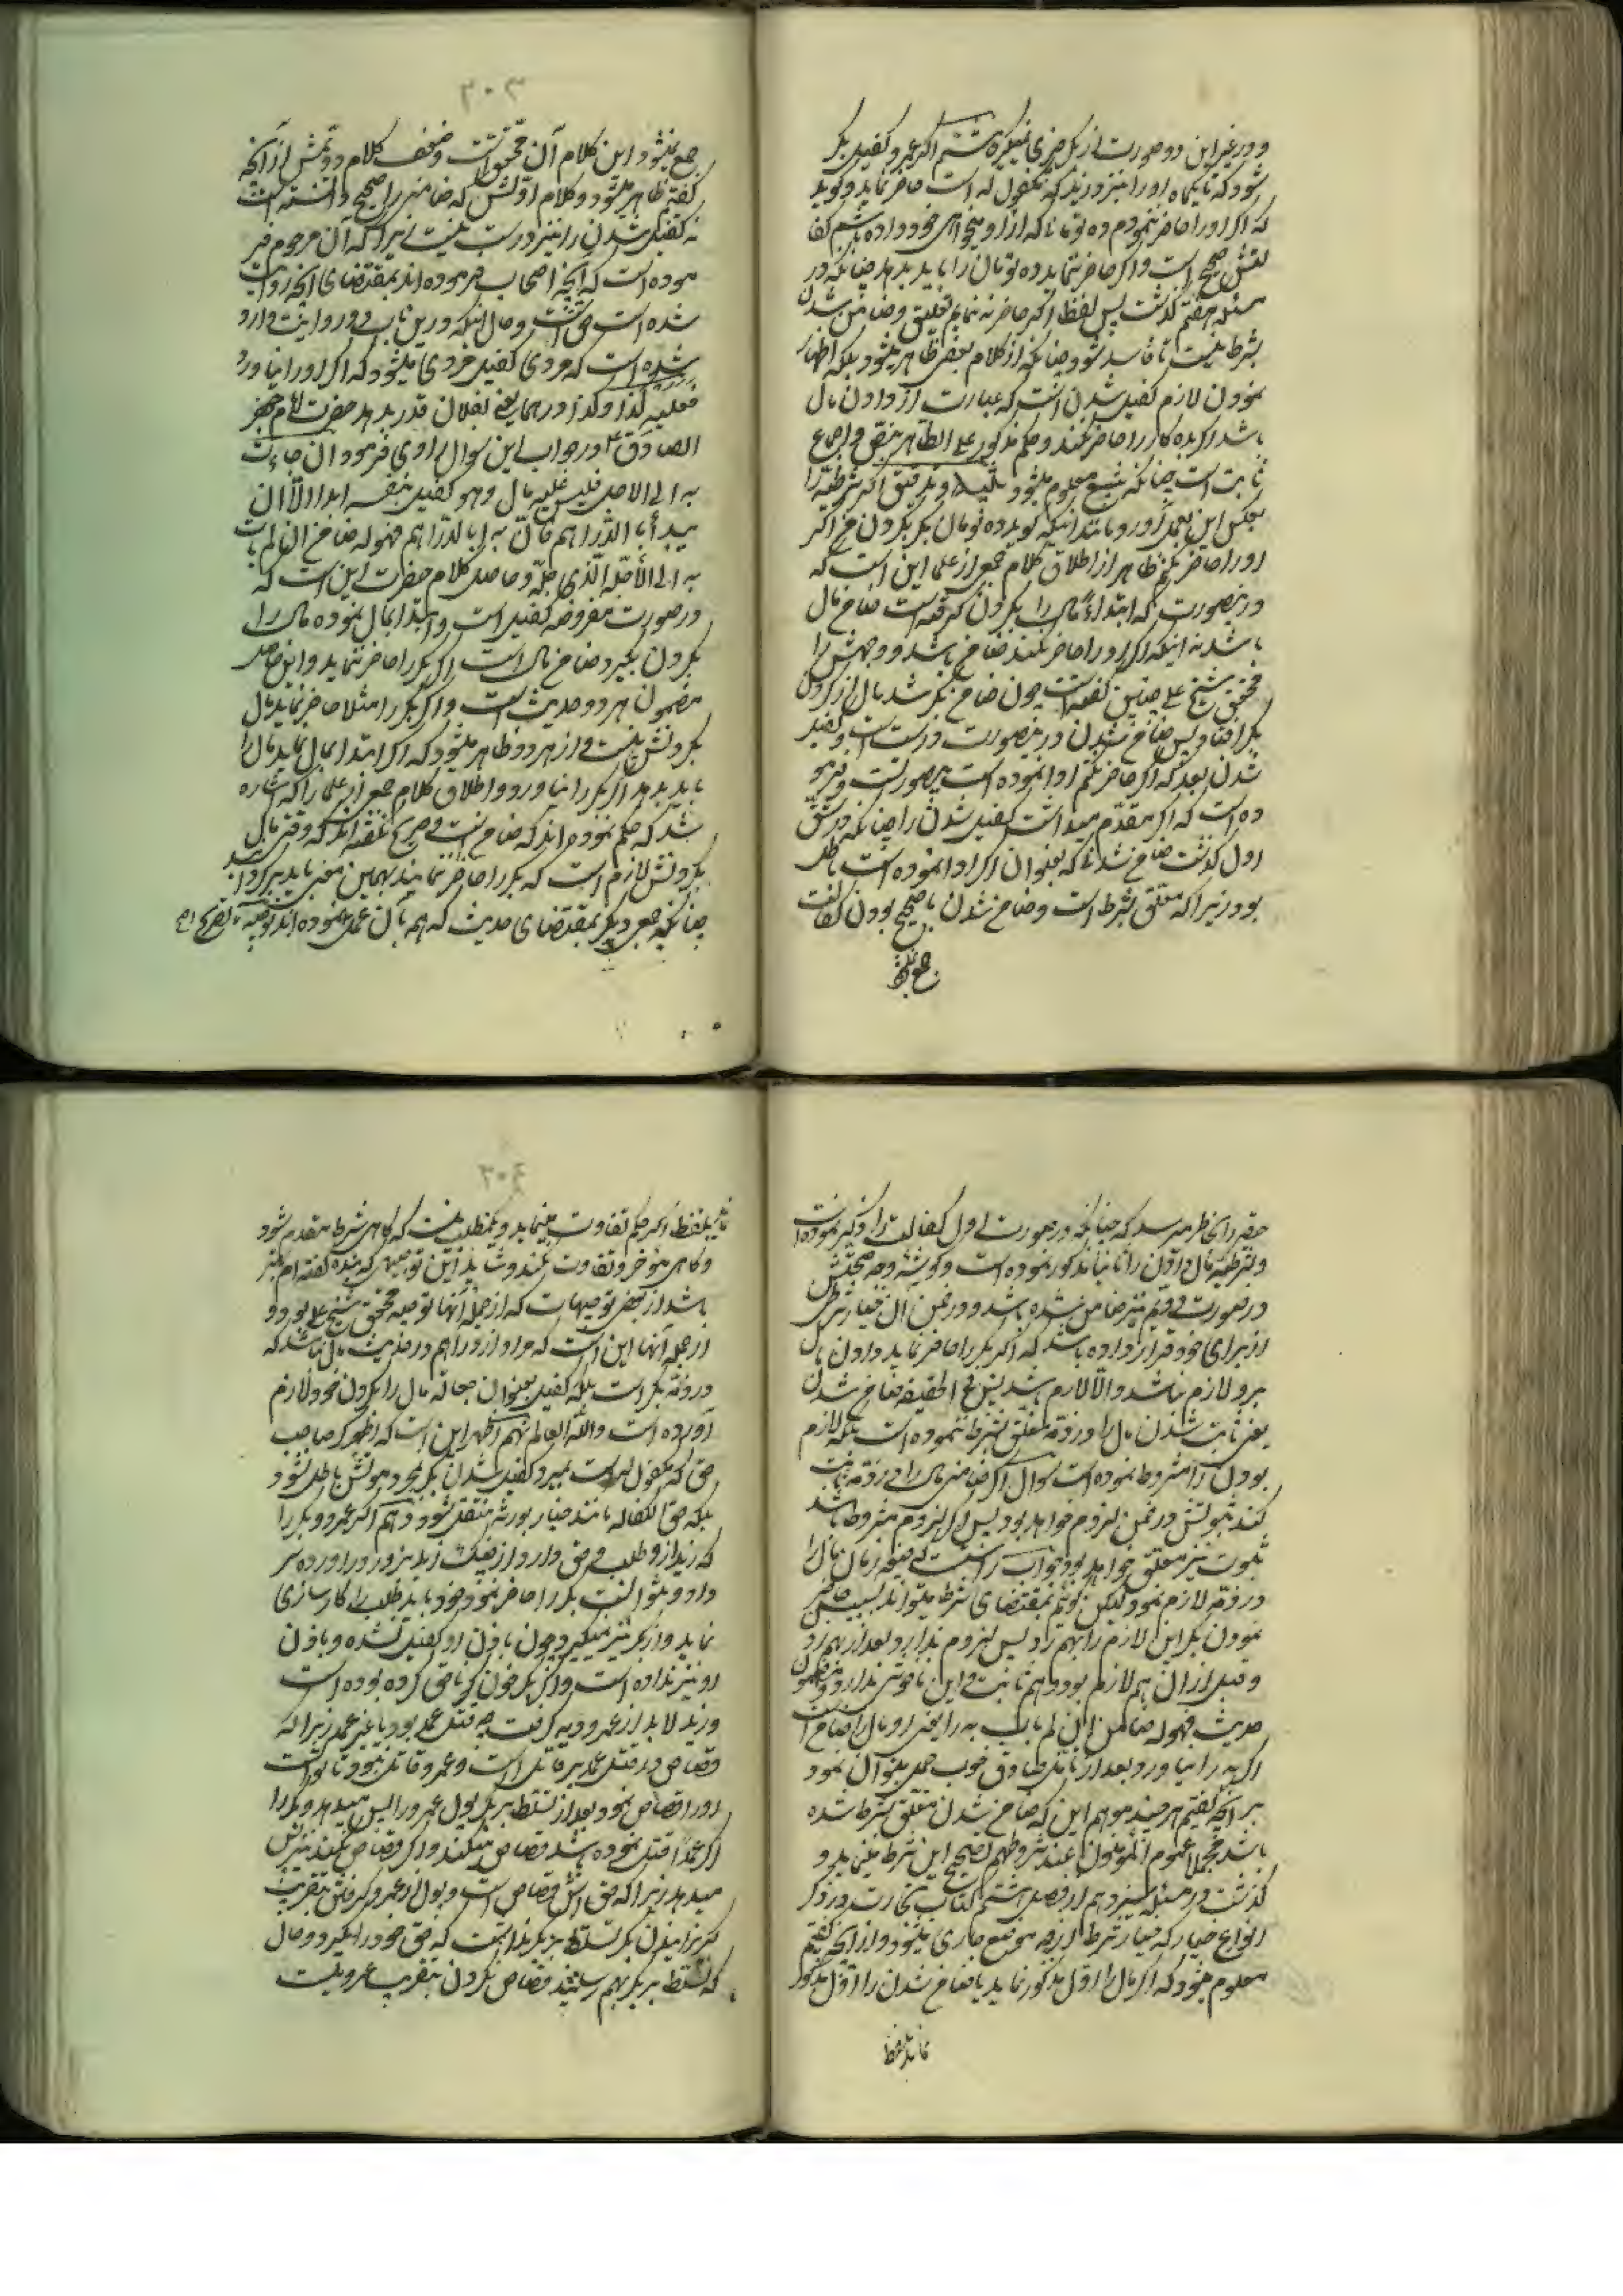 و در غیر این دو صورت از بکر چیزی نمیگیرد هشتم اگر عمرو کفیل بکر
شود که تا یکماه او را بنزد زید که مکفول له است حاضر نماید و گوید
که اگر او را حاضر ننمودم ده تومانی که از او میخواهی خود داده باشم کفا
لتش صحیح است و اگر حاضر ننماید ده تومان را باید بدهد چنانکه در
مسئله هفتم گذشت پس لفظ اگر حاضر نه نمایم تعلیق و ضامن شدن
بشرط نیست تا فاسد شود چنانکه از کلام بعضی ظاهر میشود بلکه اظهار
نمودن لازم کفیل شدن است که عبارت از دادن مال
باشد اگر بده کار را حاضر نکند و حکم مذکور علی الظاهر بنص و اجماع
ثابت است چنانکه بتتبع معلوم میشود و اگر شرطیه را
بعکس این بعمل آورد مانند اینکه گوید ده تومان بکر بگردن من اگر
او را حاضر نکنم ظاهر از اطلاق کلام جمعی از علما این است که
در اینصورت که ابتداء مال را بگردن گرفته است ضامن مال
باشد نه اینکه اگر او را حاضر نکند ضامن باشد و وجهش را
محقق شیخ علی چنین گفته است چون ضامن بکر شد مال از گردن
بکر افتاد پس ضامن شدن در اینصورت درست است و کفیل
شدن بعد که اگر حاضر نکنم ادا نموده است بیصورتست و فرمو
ده است که اگر مقدم میداشت کفیل شدن را چنانکه در شق
اول گذشت ضامن شدنی که بعنوان اگر ادا نموده است باطل
بود زیرا که معلق بشرط است و ضامن شدن با صحیح بودن کفالت
جمع نمیشود
۲۰۳
جمع نمیشود این کلام آن محقق است و ضعف کلام دوّمش از آنچه
گفتم ظاهر میشود و کلام اوّلش که ضامنی را صحیح دانسته است
نه کفیل شدن را نیز درست نیست زیرا که آن مرحوم فر
موده است که آنچه اصحاب فرموده اند بمقتضای آنچه روایت
شده است حق است و حال اینکه در این باب دو روایت وارد
شده است که مردی کفیل مردی میشود که اگر او را نیاورد
فعلیه کذا و کذا درهما یعنی بفلان قدر بدهد حضرت امام جعفر
الصادق ع در جواب این سوال راوی فرمود ان جاءت
به الی الاجل فلیس علیه مال و هو کفیل بنفسه ابدا الا ان
یبدأ بالدراهم فان بدأ بالدراهم فهو له ضامن ان لم یات
به الی الاجل الذی اجله و حاصل کلام حضرت این است که
در صورت مفروضه کفیل است و ابتدا بمال نموده مال را
بگردن بگیرد ضامن مال است اگر بکر را حاضر ننماید و این حاصل
مضمون هر دو حدیث است و اگر بکر را مثلا حاضر نماید مال
بگردنش نیست و از هر دو ظاهر میشود که اگر ابتدا بمال نماید مال را
باید بدهد اگر بکر را نیاورد و اطلاق کلام جمعی از علما را که اشاره
شد که حکم نموده اند که ضامن است و صریح نگفته اند که وقتی مال
بگردنش لازم است که بکر را حاضر ننماید بهمین معنی باید برگردانید
چنانکه جمعی دیگر بمقتضای حدیث که همه بآن عمل نموده اند تصریح
حقیر را بخاطر میرسد که چنانچه در صورت اول کفالت را ذکر نموده است
و شرطیه مال دادن را ثانیا مذکور نموده است و وجه صحتش
در صورت دویم نیز ضامن شده باشد و در ضمن آن خیار شرطی
از برای خود قرار داده باشد که اگر بکر را حاضر نماید دادن مال
بر او لازم نباشد و الا لازم باشد پس فی الحقیقه ضامن شدن
یعنی ثابت شدن مال را در ذمه معلق بشرط ننموده است بلکه لازم
بودن آنرا مشروط نموده است سوال اگر ضامنی مال را در ذمه ثابت
کند ثبوتش در ضمن لزوم خواهد بود پس اگر لزوم مشروط باشد
ثبوت نیز معلق خواهد بود جواب راست صیغه ضمان مال را
در ذمه لازم نمود لیکن بمقتضای شرط میتواند بسبب حاضر
نمودن بکر این لازم را بهم زد پس لزوم ندارد و بعد از بهم زدن
و قبل از آن هم لازم بود و هم ثابت و این منافاتی ندارد و مضمون
حدیث فهو له ضامن ان لم یات به را یعنی او مال را ضامن است
اگر به را نیاورد بعد از تامل صادق خوب حمل میتوان نمود
بر آنچه گفتیم هر چند موهم این که ضامن شدن معلق بشرط شده
باشد مجملا عموم المومنون عند شروطهم تصحیح این شرط مینماید و
گذشت در مسئله سیزدهم از فصل هشتم کتاب تجارت در ذکر
انواع خیار که خیار شرط در همه مواضع جاری میشود و از آنچه گفتیم
معلوم میشود که اگر مال را اول مذکور نماید یا ضامن شدن را اوّل مذکور
نماید بلفظ
۲۰۴
نماید بلفظ اگر حکم تفاوت مینماید و بمطلب نیست که گاهی شرط مقدم شود
و گاهی مؤخر و تفاوت نکند و شاید این توجیهی که بنده گفته ام بهتر
باشد از بعضی توجیهات که از جمله آنها توجیه محقق شیخ علی بود و
از جمله آنها این است که مراد از دراهم در حدیث مال نباشد که
در ذمّه بکر است بلکه کفیل بعنوان جعاله مال را بگردن خود لازم
آورده است و الله العالم نهم اظهر این است که اگر صاحب
حق که مکفول له است بمیرد کفیل شدن بکر بمجرد موتش باطل نشود
بلکه حق الکفاله مانند خیار بورثه منتقل شود دهم اگر عمرو بکر را
که زید از او طلب و حق دارد از چنگ زید بزور در آورده سر
داد و نتوانست بکر را حاضر نمود خود باید طلب را کارسازی
نماید و از بکر نیز نمیگیرد چون باذن او کفیل نشده و باذن
او نیز نداده است و اگر بکر خون ناحق کرده بوده است
و زید لابد از عمرو دیه گرفت چه قتل عمد بود یا غیر عمد زیرا که
قصاص در قتل عمد بر قاتل است و عمرو قاتل نبود تا توانست
او را قصاص نمود بعد از تسلط بر بکر پول عمرو را پس میدهد و بکر را
اگر عمداً قتل نموده باشد قصاص میکند و اگر قصاص نکند نیز پس
میدهد زیرا که حق اش قصاص است و پول از عمرو گرفتن بتقریب
گریزانیدن بکر تسلط بر بکر نداشت که حق خود را بگیرد و حال
که تسلط بر بکر بهم رسانید قصاص نکردن بتقریب عمرو نیست